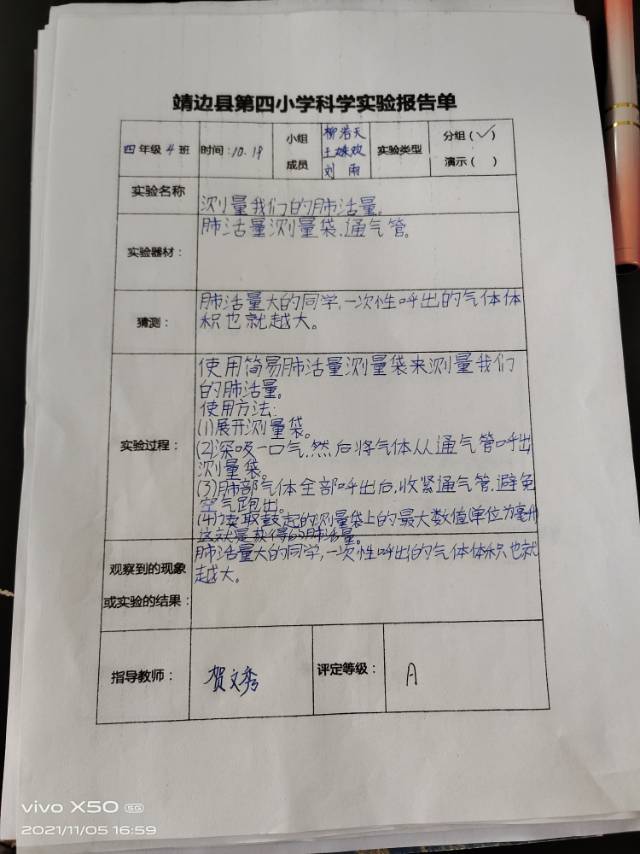 靖边县第四小学科学实验报告单
四年级4班 时间:10.19 小组成员 柳浩天 王姝欢 刘雨 实验类型 分组(✓) 演示( )
实验名称 测量我们的肺活量。
实验器材: 肺活量测量袋、通气管。
猜测: 肺活量大的同学,一次性呼出的气体体
积也就越大。
实验过程: 使用简易肺活量测量袋来测量我们
的肺活量。
使用方法:
(1)展开测量袋。
(2)深吸一口气,然后将气体从通气管呼出
测量袋。
(3)肺部气体全部呼出后,收紧通气管,避免
空气跑出。
(4)读取鼓起的测量袋上的最大数值(单位为毫升
这就是获得的肺活量。
观察到的现象
或实验的结果:
肺活量大的同学,一次性呼出的气体体积也就
越大。
指导教师: 贺文秀 评定等级: A
vivo X50 5G
2021/11/05 16:59